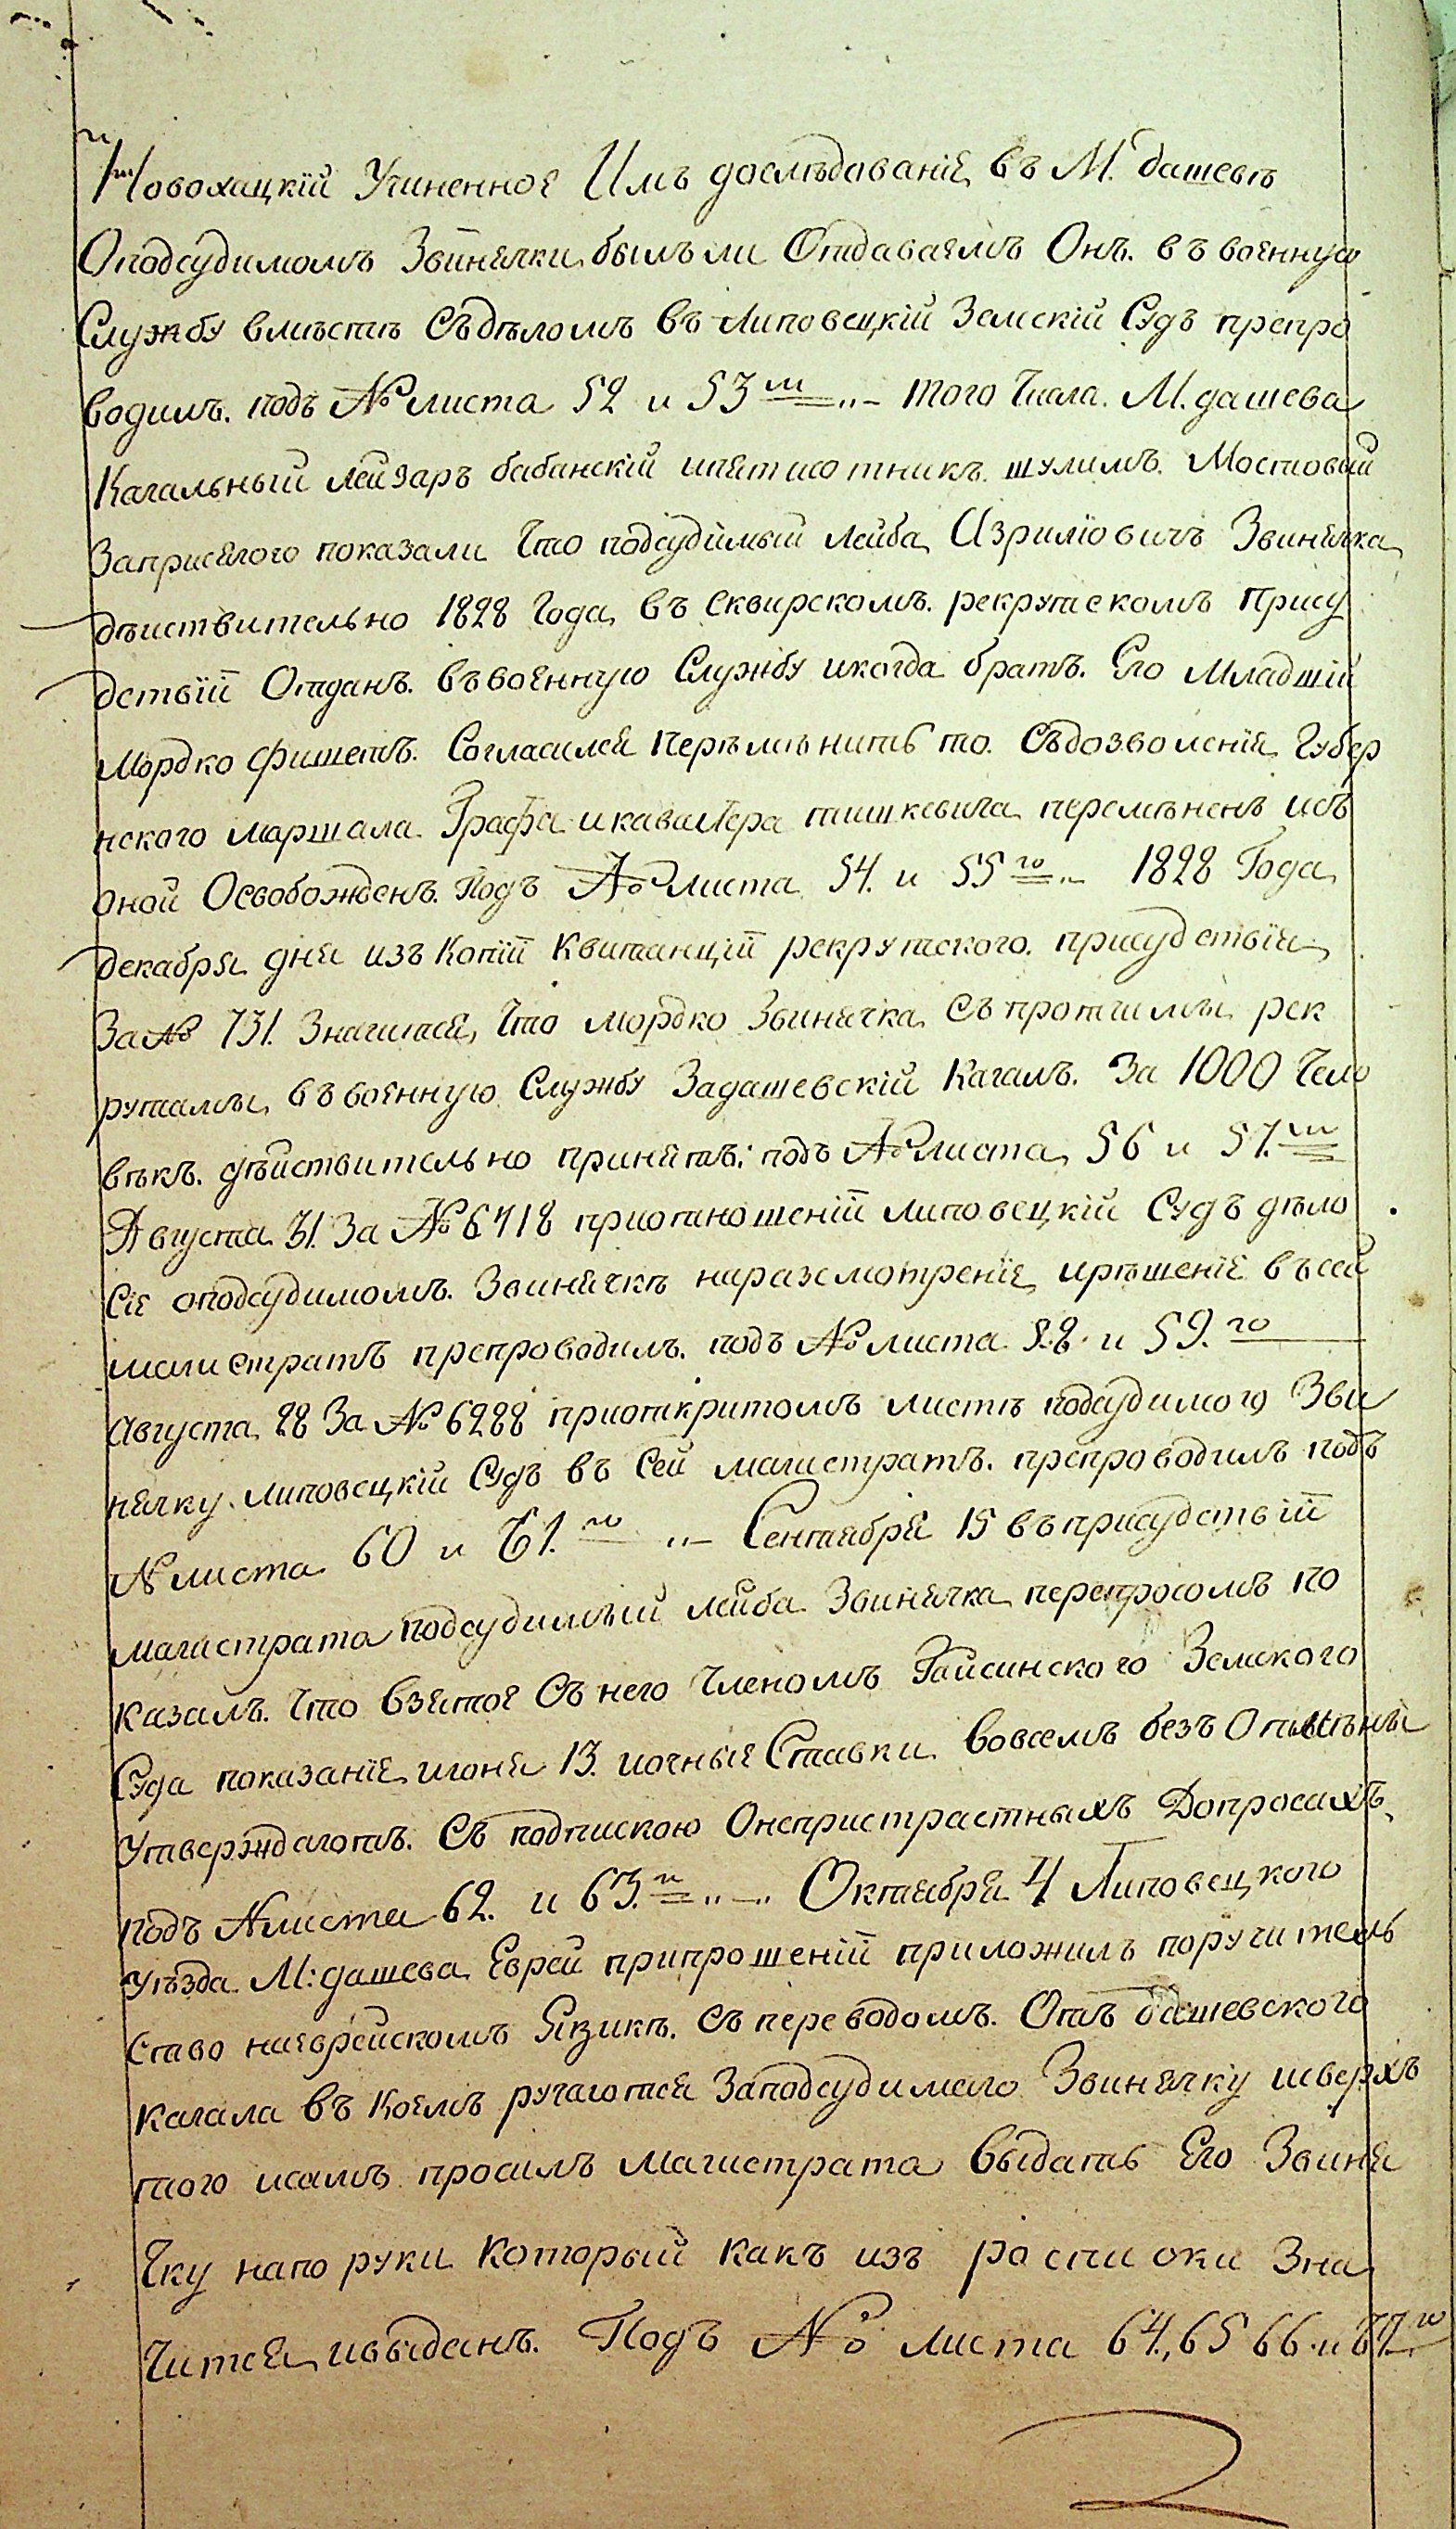 Новохацкій Учиненное Имъ дослѣдованіе въ М. дашевѣ
Оподсудимомъ Звинячки былъ ли Отдаваемъ Онъ. въ военную
Службу вмѣстѣ Съдѣломъ въ Липовецкій Земскій Судъ препро
водилъ. подъ № листа 52 и 53 м „ – того Числа. М. дашева
Кагальный Лейзаръ бабанскій ипятисотникъ шулимъ. Мостовый
Заприсягого показали Что подсудимый Лейба Изриліовичъ Звинячка
дѣиствительно 1828 Года въ Сквирскомъ. рекрутскомъ Прису
дствіи Отданъ. въвоенную Службу икогда братъ. Его Младшій
Мордко Фишетъ. Согласился Перемѣнить то. Съдозволенія Губер
нского Маршала Графа икавалера тишкевича перемѣненъ изъ
оной Освобожденъ. Подъ № листа 54. и 55 го „ 1828 Года
декабря дня изъ Копіи Квитанціи рекрутского. присудствія
За № 731. Значится, Что Мордко Звинячка Съпротчимы рек
рутамы въвоенную Службу Задашевскій Кагалъ. За 1000 Чело
вѣкъ. дѣиствительно принятъ: подъ № листа 56 и 57. м
Августа 31. За № 6718 приотношеніи Липовецкій Судъ дѣло
Сіе оподсудимомъ. Звинячкѣ наразсмотреніе ирѣшеніе въсей
магистратъ препроводилъ. подъ № листа 58. и 59. го
Августа 28 За № 6288 приоткритомъ листѣ подсудимого Зви
нячку. Липовецкій Судъ въ Сей магистратъ. препроводилъ подъ
№ листа 60 и 61. м „ – Сентября 15 въприсудствіи
магистрата подсудимый Лейба Звинячка перепросомъ по
казалъ. Что взятое Съ него Членомъ Гайсинского Земского
Суда показаніе июня 13. иочные Ставки вовсемъ безъ Отмѣны
Утверждаютъ. Съ подпискою Онепристрастныхъ Допросахъ
подъ № листа 62. и 63. м „ – „ Октября 4 Липовецкого
Уѣзда. М: дашева Еврей припрошеніи приложилъ поручитель
Ство наеврейскомъ Языкѣ. Съ переводомъ. Отъ дашевского
Кагала въ Коемъ ручаются Заподсудимого Звинячку исверхъ
того самъ просилъ Магистрата выдать Его Звиня
Чку напо руки который какъ изъ росписки Зна
Чится ивыданъ. Подъ № листа 64, 65 66. и 67. м